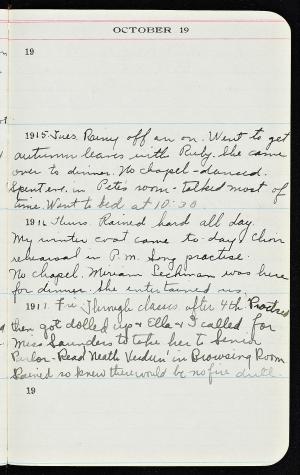 OCTOBER 19
19
1915 Tues. Rainy off an on. Went to get
autumn leaves with Ruby. She came
over to dinner. No chapel - danced.
Spent eve. in Pete's room - talked most of
time. Went to bed at 10:20.
1916 Thurs. Rained hard all day.
My winter coat came to-day. Choir
rehearsal in P.M. Song practise.
No chapel. Miriam was here
for dinner. She entertained us.
1917. Fri. Through classes after 4th. Practiced
then got dolled up & Ella & I called for
Miss Saunders to take her to Senior
Parlor - Read "Neath Verdun" in Browsing Room
Rained so knew there would be no fire drill.
19